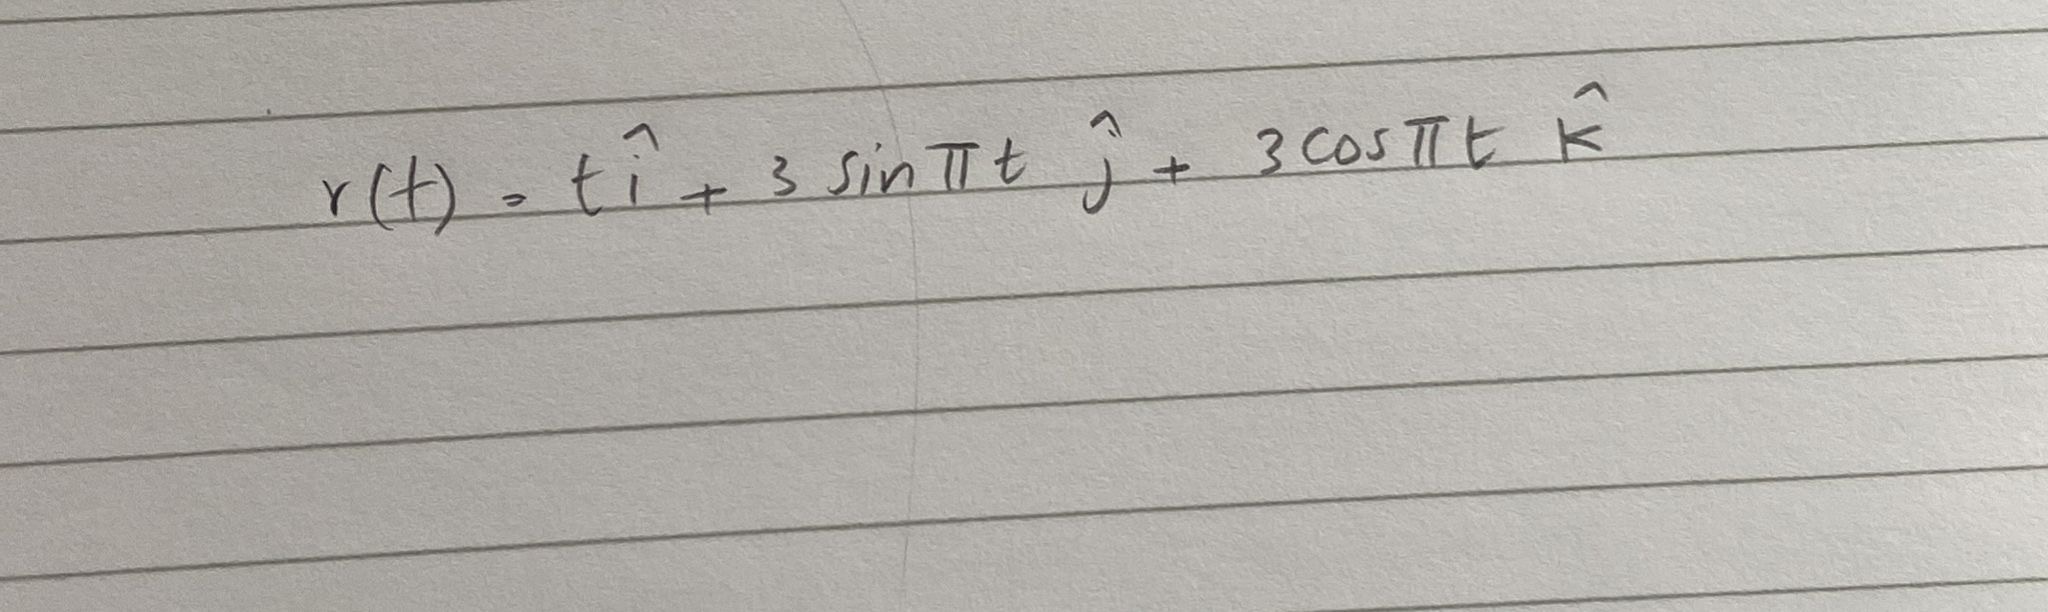 r(t) = t î + 3 sin π t ĵ + 3 cos π t k̂